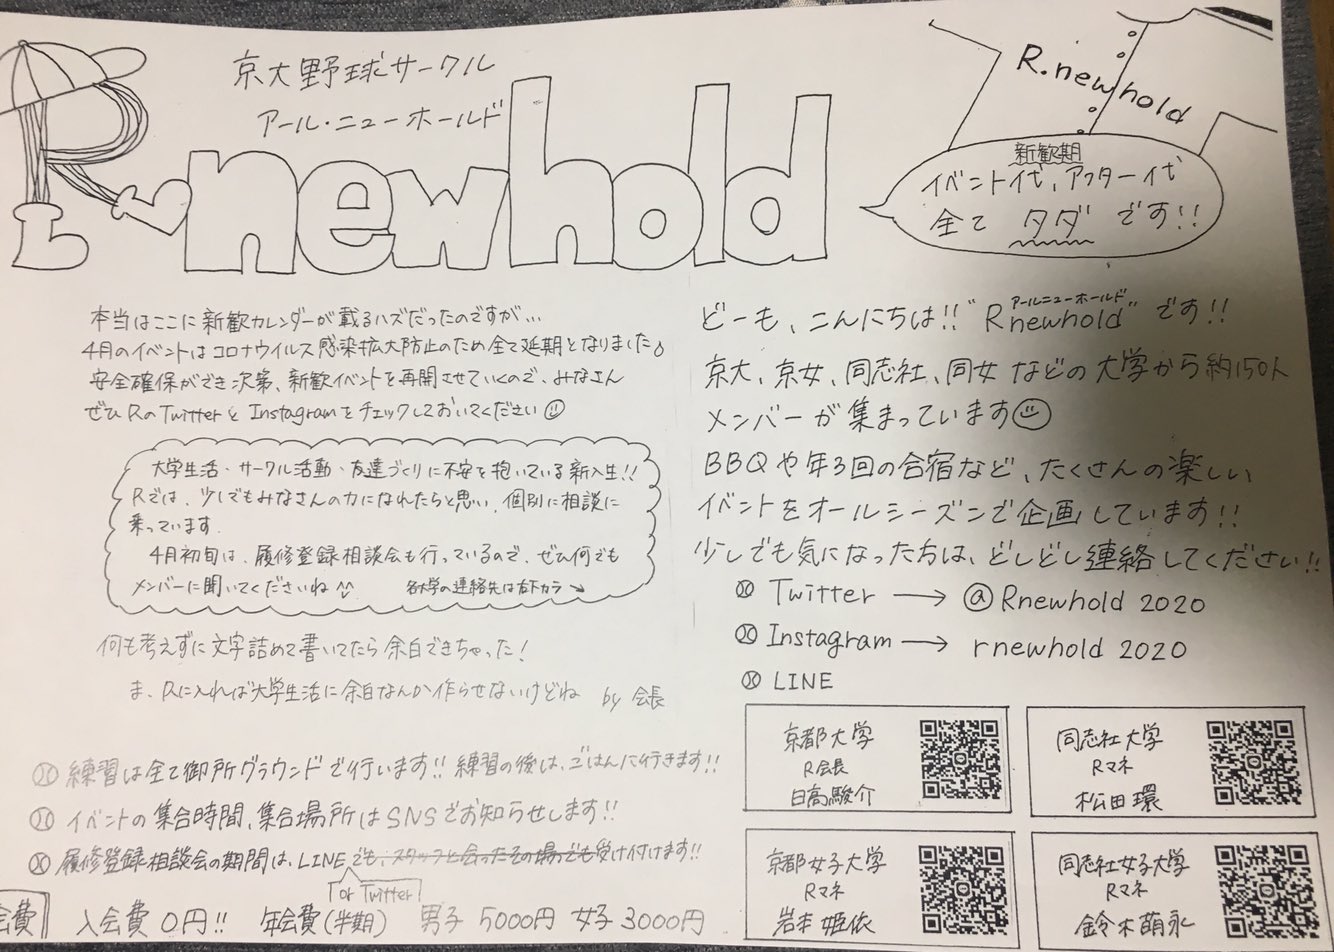 京大野球サークル
アール・ニューホールド
Rnewhold
R.newhold
新歓期
イベント代、アフター代
全て タダ です!!
本当はここに新歓カレンダーが載るハズだったのですが...
4月のイベントはコロナウイルス感染拡大防止のため全て延期となりました
安全確保ができ次第、新歓イベントを再開させていくので、みなさん
ぜひRのTwitterとInstagramをチェックしておいてください
大学生活・サークル活動・友達づくりに不安を抱いている新入生!!
Rでは、少しでもみなさんの力になれたらと思い、個別に相談に
乗っています.
4月初旬は、履修登録相談会も行っているので、ぜひ何でも
メンバーに聞いてくださいね^^
各大学の連絡先は右下カラ→
何も考えずに文字詰めて書いてたら余白できちゃった!
ま、Rに入れば大学生活に余白なんか作らせないけどね by 会長
練習は全て御所グラウンドで行います!! 練習の後は、ごはんに行きます!!
イベントの集合時間、集合場所はSNSでお知らせします!!
履修登録相談会の期間は、LINEでも、スタッフと会ったその場でも受け付けます!!
or Twitter
会費 入会費 0円!! 年会費(半期) 男子 5000円 女子 3000円
どーも、こんにちは!! "Rnewhold" です!!
アールニューホールド
京大、京女、同志社、同女 などの大学から約150人
メンバーが集まっています
BBQや年3回の合宿など、たくさんの楽しい
イベントをオールシーズンで企画しています!!
少しでも気になった方は、どしどし連絡してください!!
Twitter → @Rnewhold 2020
Instagram → rnewhold 2020
LINE
京都大学
R会長
日高駿介
同志社大学
Rマネ
松田環
京都女子大学
Rマネ
岩本姫依
同志社女子大学
Rマネ
鈴木萌永